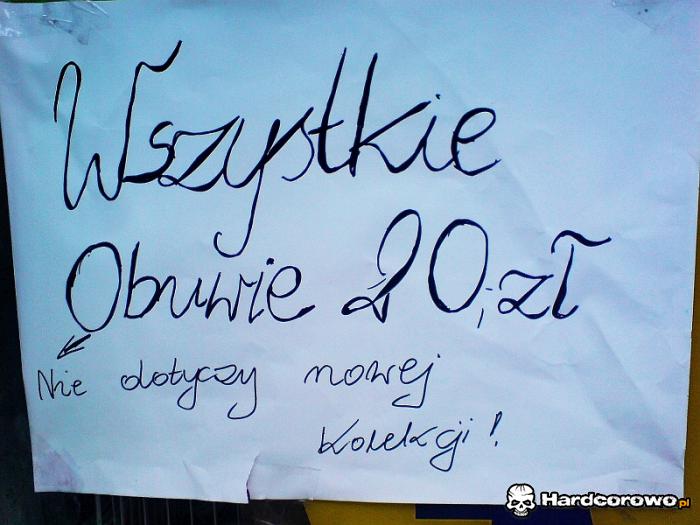 Wszystkie
Obuwie 20,-zł
Nie dotyczy nowej
kolekcji!
Hardcorowo.pl